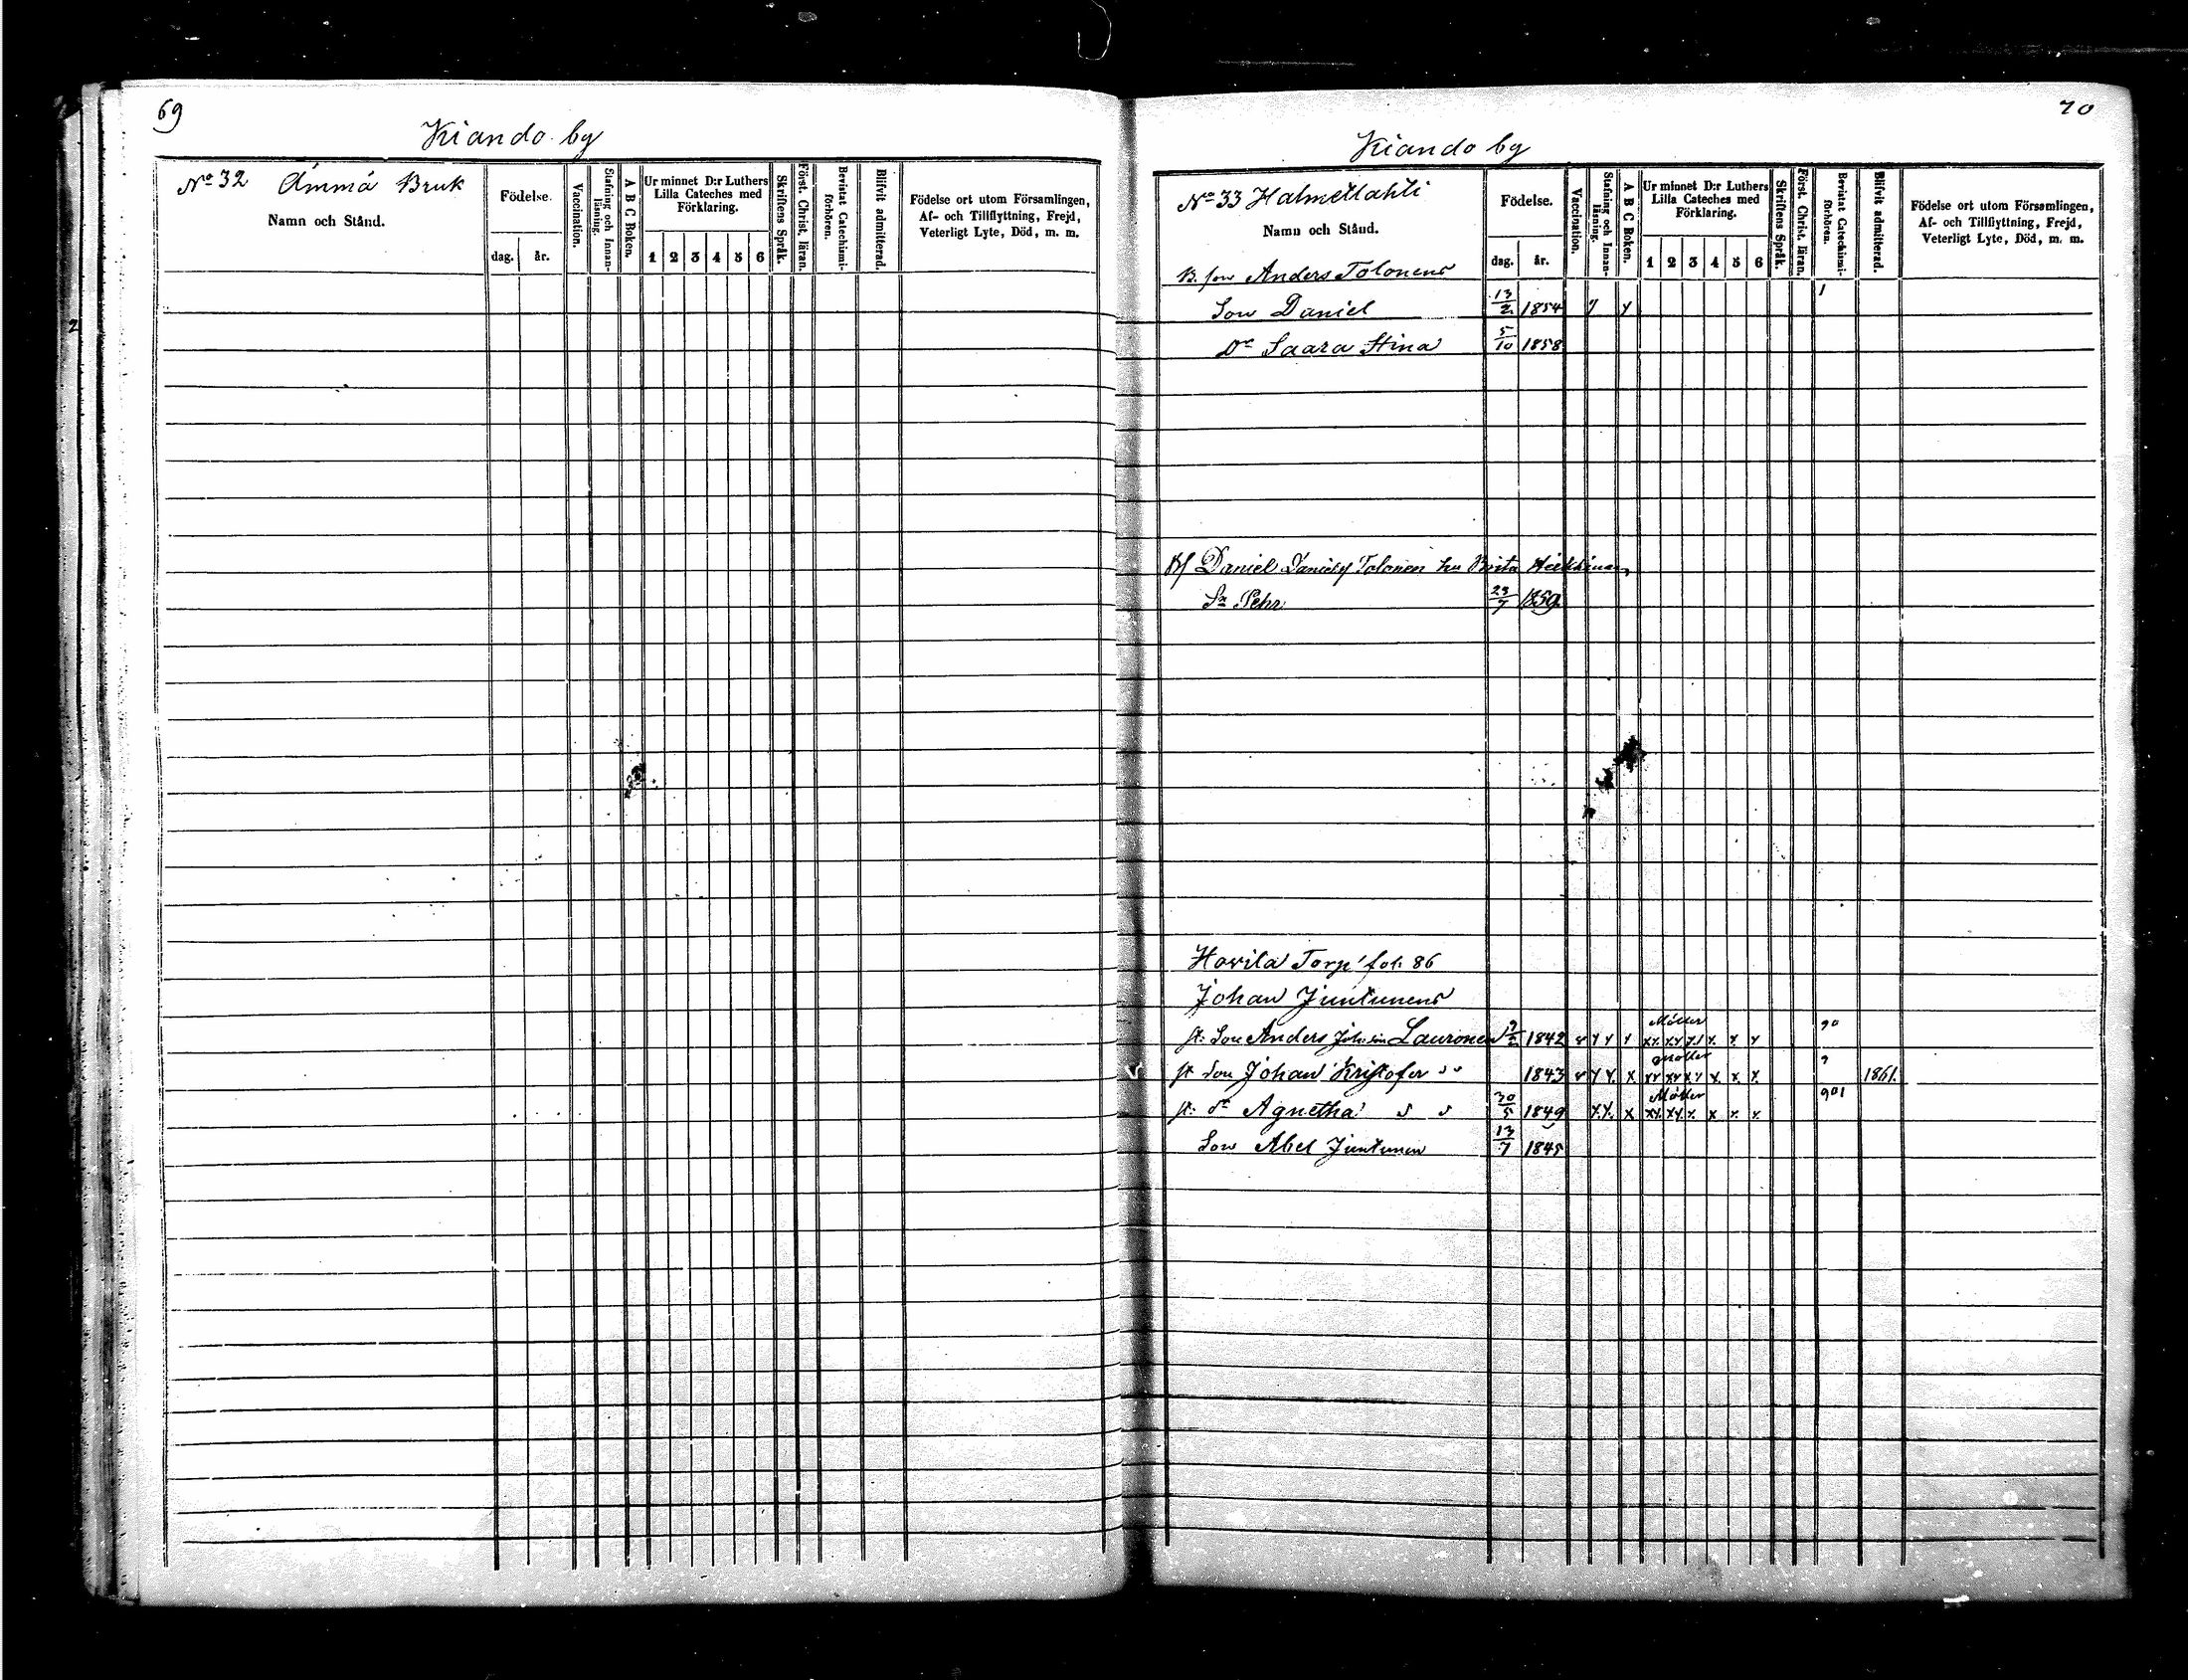 69
Kiando by
No 32 Ämmä Bruk
Namn och Stånd.
Födelse.
dag. år.
Vaccination.
Stafning och Innanläsning.
A B C Boken.
Ur minnet D:r Luthers Lilla Cateches med Förklaring.
1 2 3 4 5 6
Skriftens Språk.
Först. Christ. läran.
Bevistat Catechismiförhören.
Blifvit admitterad.
Födelse ort utom Församlingen,
Af- och Tillflyttning, Frejd,
Veterligt Lyte, Död, m. m.
70
Kiando by
No 33 Halmetlahti
Namn och Stånd.
Födelse.
dag. år.
Vaccination.
Stafning och Innanläsning.
A B C Boken.
Ur minnet D:r Luthers Lilla Cateches med Förklaring.
1 2 3 4 5 6
Skriftens Språk.
Först. Christ. läran.
Bevistat Catechismiförhören.
Blifvit admitterad.
Födelse ort utom Församlingen,
Af- och Tillflyttning, Frejd,
Veterligt Lyte, Död, m. m.
B. son Anders Tolonens
Son Daniel 13/2 1854 1
Dr Saara Stina 5/10 1858
Daniel Daniels Tolonen hu Brita Heikkinen
Sn Pehr 23/7 1859
Hovila Torp fol: 86
Johan Juntunens
st: Son Anders Joh: son Lauronen 1842 90
st Son Johan Kristofer 1843 1861.
st: dr Agnetha 30/5 1849 901
Son Abel Juntunen 13/7 1845